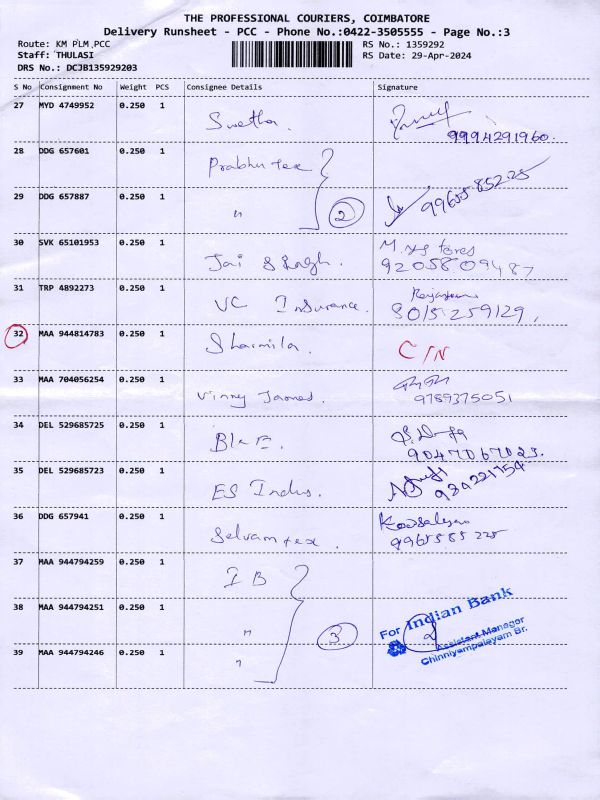 THE PROFESSIONAL COURIERS, COIMBATORE
Delivery Runsheet - PCC - Phone No.:0422-3505555 - Page No.:3
Route: KM PLM,PCC
Staff: THULASI
DRS No.: DCJB135929203
RS No.: 1359292
RS Date: 29-Apr-2024
S No Consignment No Weight PCS Consignee Details Signature
27 MYD 4749952 0.250 1 Swetha. 9994291960.
28 DDG 657601 0.250 1 Prabhu tex
29 DDG 657887 0.250 1 " 2 9965585225
30 SVK 65101953 0.250 1 Jai Singh. 9205809487
31 TRP 4892273 0.250 1 VC Insurance. 8015259129,
32 MAA 944814783 0.250 1 Sharmila. C/N
33 MAA 704056254 0.250 1 Vinny 9789375051
34 DEL 529685725 0.250 1 9047067023.
35 DEL 529685723 0.250 1 ES Indus.
36 DDG 657941 0.250 1 Selvam tex. Kowsalya 9965585225
37 MAA 944794259 0.250 1 I B
38 MAA 944794251 0.250 1 " 3
39 MAA 944794246 0.250 1 "
For Indian Bank
2
Assistant Manager
Chinniyampalayam Br.